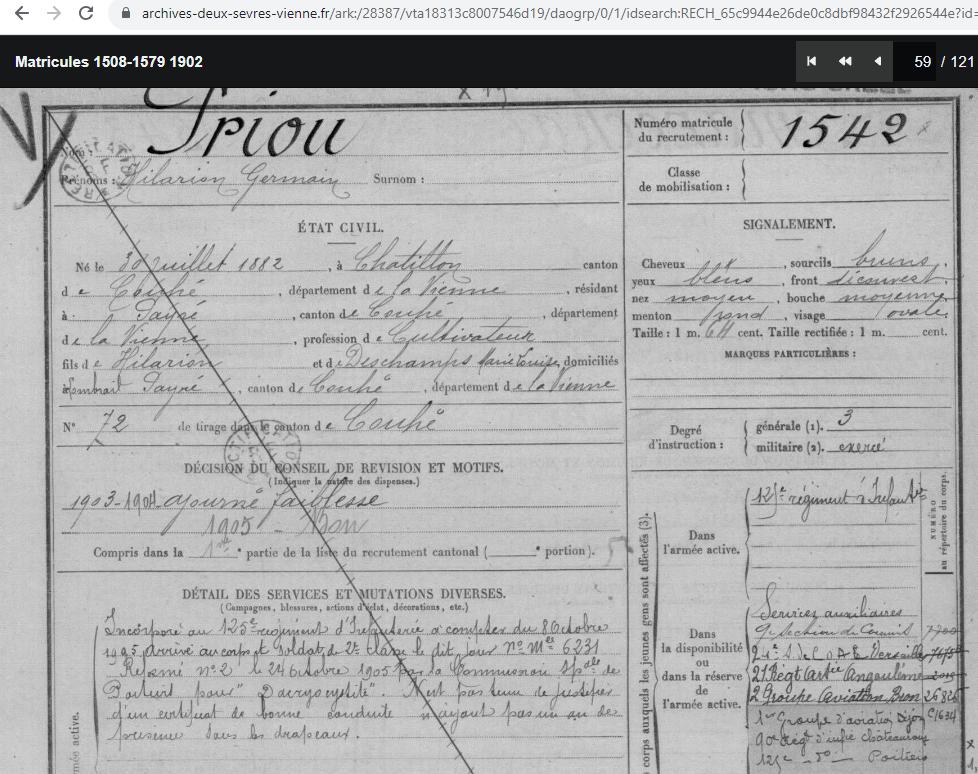 archives-deux-sevres-vienne.fr/ark:/28387/vta18313c8007546d19/daogrp/0/1/idsearch:RECH_65c9944e26de0c8dbf98432f2926544e?id=
Matricules 1508-1579 1902
59 / 121
Priou
Numéro matricule du recrutement : 1542
Prénoms : Hilarion Germain Surnom :
Classe de mobilisation :
ÉTAT CIVIL.
Né le 30 juillet 1882, à Chatillon canton
de Couhé, département de la Vienne, résidant
à Payré, canton de Couhé, département
de la Vienne, profession de Cultivateur
fils de Hilarion et de Deschamps Marie Louise, domiciliés
à Payré, canton de Couhé, département de la Vienne
N° 72 de tirage dans le canton de Couhé
SIGNALEMENT.
Cheveux , sourcils bruns
yeux bleus, front découvert
nez moyen, bouche moyenne
menton rond, visage ovale
Taille : 1 m. 64 cent. Taille rectifiée : 1 m. cent.
MARQUES PARTICULIÈRES :
Degré d'instruction :
générale (1). 3
militaire (2). exercé
DÉCISION DU CONSEIL DE REVISION ET MOTIFS.
(Indiquer la nature des dispenses.)
1903-1904 ajourné faiblesse
1905 - Bon
Compris dans la 1re partie de la liste du recrutement cantonal ( portion). 5
DÉTAIL DES SERVICES ET MUTATIONS DIVERSES.
(Campagnes, blessures, actions d'éclat, décorations, etc.)
Incorporé au 125e régiment d'Infanterie à compter du 8 Octobre
1905 arrivé au corps et soldat de 2e classe le dit jour No Mle 6231
Réformé no 2 le 24 Octobre 1905 par la Commission Spale de
Poitiers pour "Dacryocystite". N'est pas tenu de justifier
d'un certificat de bonne conduite n'ayant pas un an de
présence sous les drapeaux.
mée active.
corps auxquels les jeunes gens sont affectés (3).
NUMÉRO au répertoire du corps.
Dans l'armée active.
125e régiment d'Infanterie
Dans la disponibilité ou dans la réserve de l'armée active.
Services auxiliaires
9e Section de Commis 7700
24e S. de C.O.A.E. Versailles
21 Régt Artie Angoulême
2 Groupe Aviation Bron 26826
1er Groupe d'aviation Dijon C1634
90e Régt d'infie Châteauroux
125e - do - Poitiers